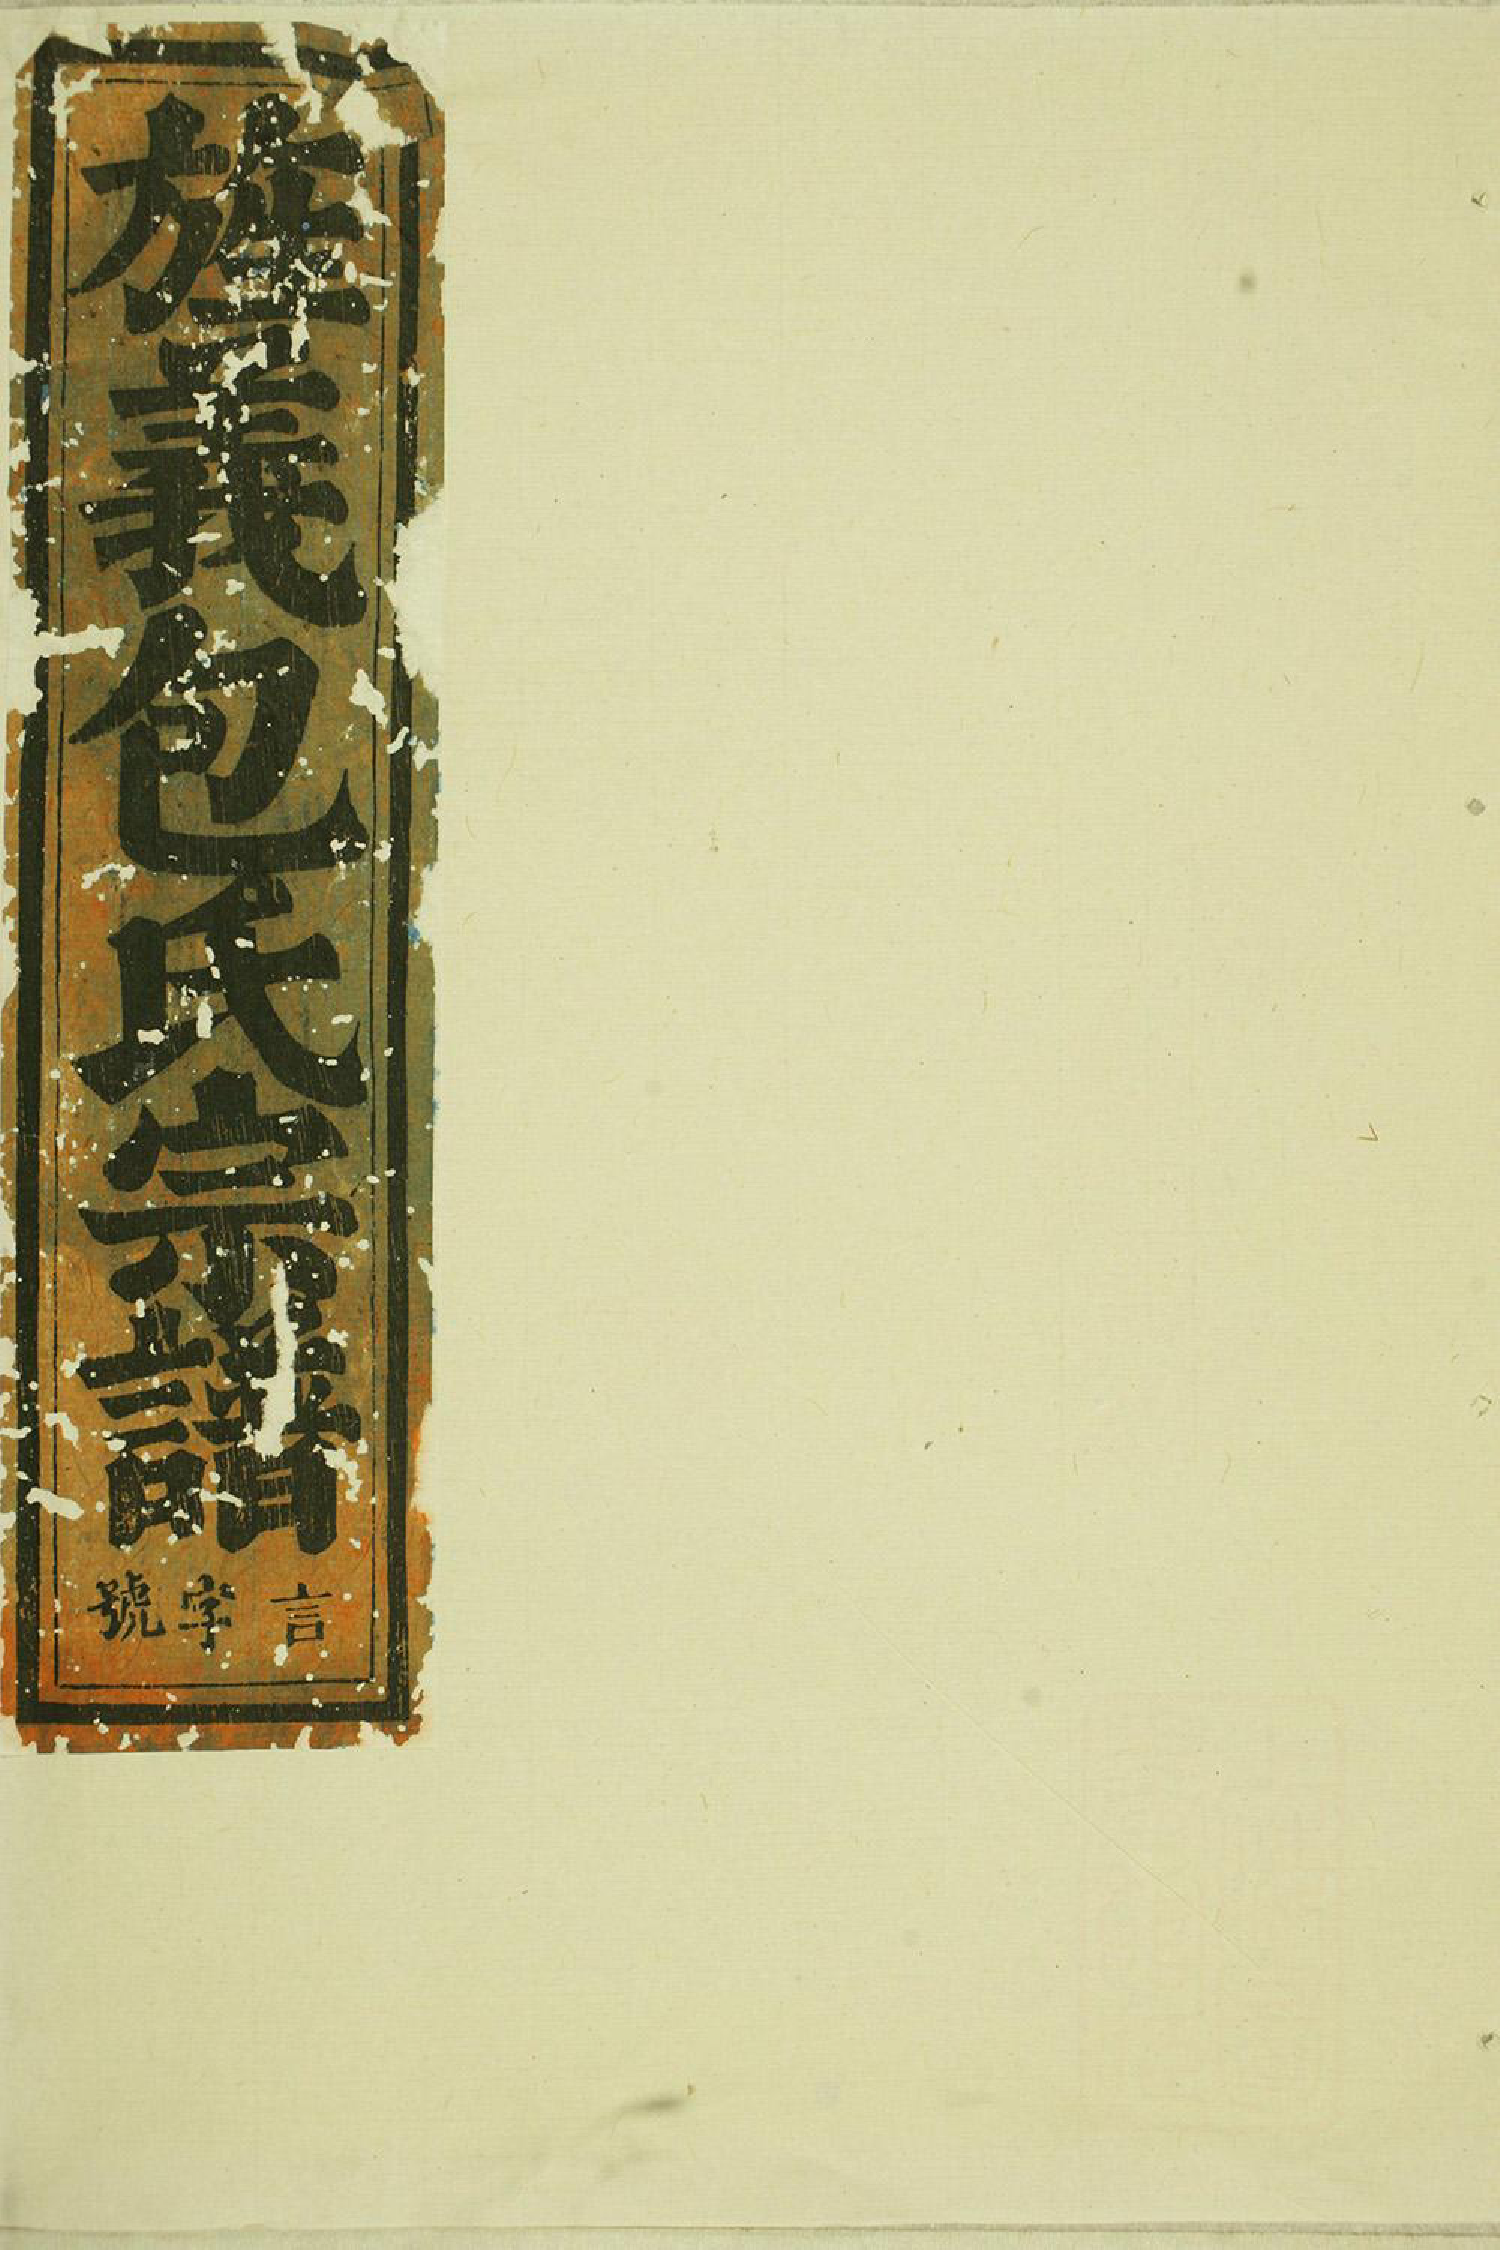 旌義包氏宗譜
言字號